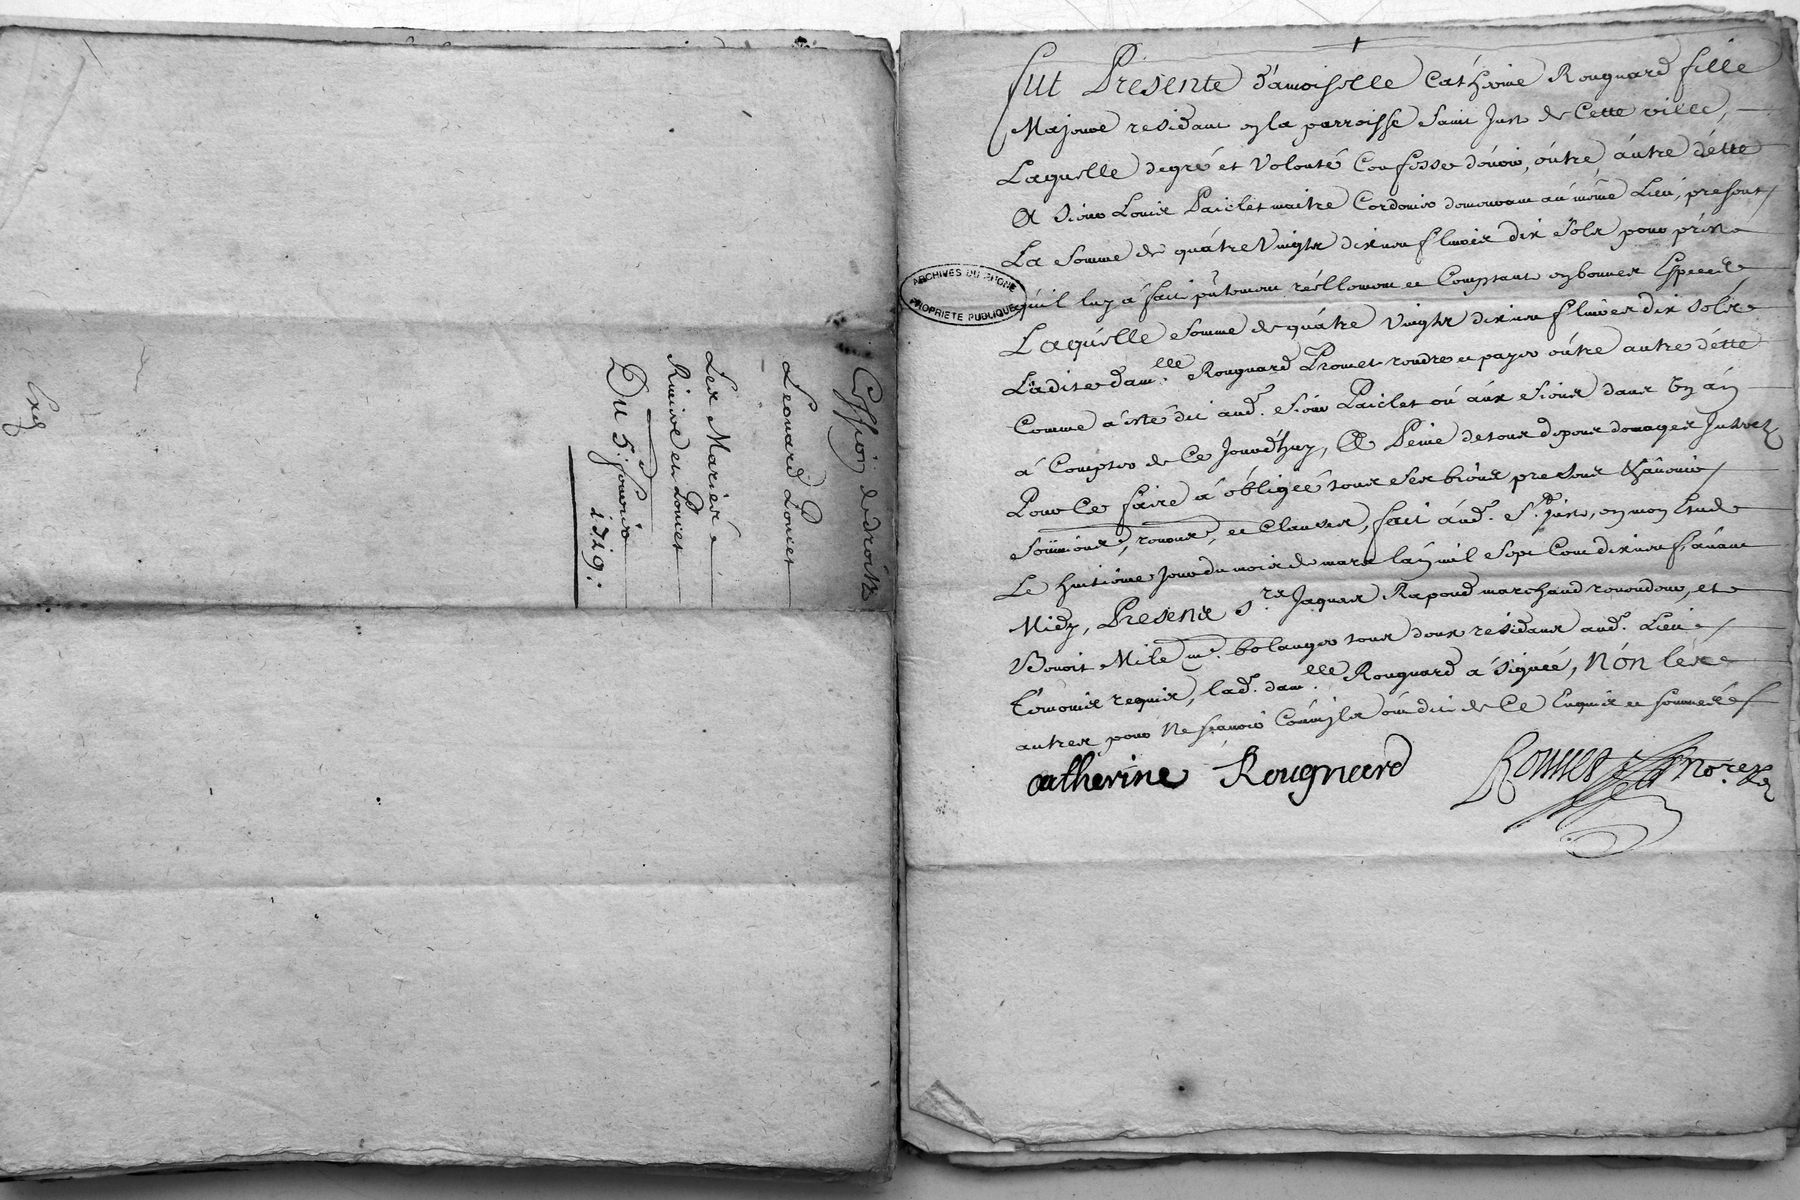 Cession de droits
Leonard Poncet
Les Mariés
Riviere et Poncet
Du 5.e fevrier
1719:
Exp
ARCHIVES DU RHONE
PROPRIETE PUBLIQUE
fut Présente damoiselle Catherine Rougnard fille
Majeure residant en la parroisse Saint Just de Cette ville,
Laquelle degré et volonté Confesse devoir, outre autre dette
A Sieur Louis Paiclet maitre Cordonier demeurant au même Lieu, present
La Somme de quatre Vingts dix neuf livres dix sols pour prest
quil luy a fait reellement et Comptant en bonnes Especes
Laquelle somme de quatre Vingts dix neuf livres dix sols
Ladite dam.lle Rougnard Promet rendre et payer outre autre dette
Comme a esté dit aud. Sieur Paiclet ou aux Siens dans Un an
à Compter de Ce Jourdhuy, A Peine de tous depens domages Interets
Pour Ce faire a obligée tous ses biens presens & avenir
Soumions, renons, et Clauses, fait aud. St. Just, en mon Etude
Le huitieme Jour du mois de mars lan mil Sept Cent dix neuf, avant
Midy, Presents S.rs Jaques Rapoud marchand revendeur, et
Benoit Mile m.e bolanger tous deux residans aud. Lieu
temoins requis, lad. dam.lle Rougnard a signée, Non les
autres pour Ne scavoir Comme ils ont dit de Ce Enquis et sommés
Catherine Rougneard
no.re